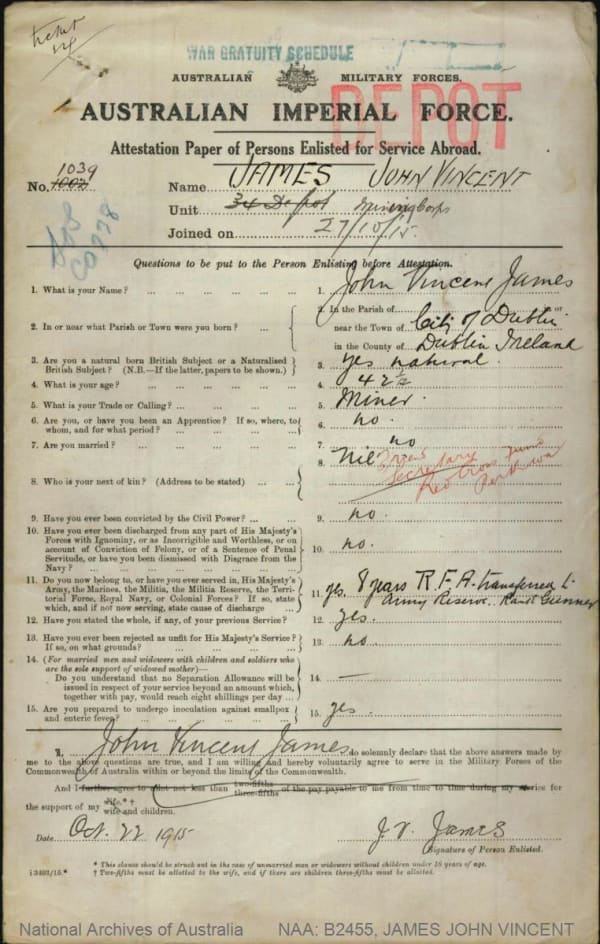 ticket
WAR GRATUITY SCHEDULE
AUSTRALIAN MILITARY FORCES.
AUSTRALIAN IMPERIAL FORCE.
DEPOT
Attestation Paper of Persons Enlisted for Service Abroad.
1039
No. 1002 Name JAMES JOHN VINCENT
Unit 34 Depot Mining Corps
Joined on 27/10/15.
Questions to be put to the Person Enlisting before Attestation.
1. What is your Name? 1. John Vincent James
2. In or near what Parish or Town were you born? 2. In the Parish of or
near the Town of City of Dublin
in the County of Dublin Ireland
3. Are you a natural born British Subject or a Naturalised
British Subject? (N.B.—If the latter, papers to be shown.) 3. yes natural.
4. What is your age? 4. 42½
5. What is your Trade or Calling? 5. Miner.
6. Are you, or have you been an Apprentice? If so, where, to
whom, and for what period? 6. no.
7. Are you married? 7. no
8. Who is your next of kin? (Address to be stated) 8. Nil
Secretary
Red Cross Fund
Perth WA
9. Have you ever been convicted by the Civil Power? 9. no.
10. Have you ever been discharged from any part of His Majesty's
Forces with Ignominy, or as Incorrigible and Worthless, or on
account of Conviction of Felony, or of a Sentence of Penal
Servitude, or have you been dismissed with Disgrace from the
Navy? 10. no.
11. Do you now belong to, or have you ever served in, His Majesty's
Army, the Marines, the Militia, the Militia Reserve, the Terri-
torial Force, Royal Navy, or Colonial Forces? If so, state
which, and if not now serving, state cause of discharge 11. yes. 8 years R.F.A. transferred to
Army Reserve. Rank Gunner
12. Have you stated the whole, if any, of your previous Service? 12. yes.
13. Have you ever been rejected as unfit for His Majesty's Service?
If so, on what grounds? 13. no
14. (For married men and widowers with children and soldiers who
are the sole support of widowed mother)—
Do you understand that no Separation Allowance will be
issued in respect of your service beyond an amount which,
together with pay, would reach eight shillings per day 14. —
15. Are you prepared to undergo inoculation against smallpox
and enteric fever? 15. yes.
I, John Vincent James do solemnly declare that the above answers made by
me to the above questions are true, and I am willing and hereby voluntarily agree to serve in the Military Forces of the
Commonwealth of Australia within or beyond the limits of the Commonwealth.
And I further agree to allot not less than two-fifths three-fifths of the pay payable to me from time to time during my service for
the support of my wife.*† wife and children.
Date Oct. 22 1915 J. V. James
Signature of Person Enlisted.
* This clause should be struck out in the case of unmarried men or widowers without children under 18 years of age.
† Two-fifths must be allotted to the wife, and if there are children three-fifths must be allotted.
National Archives of Australia NAA: B2455, JAMES JOHN VINCENT